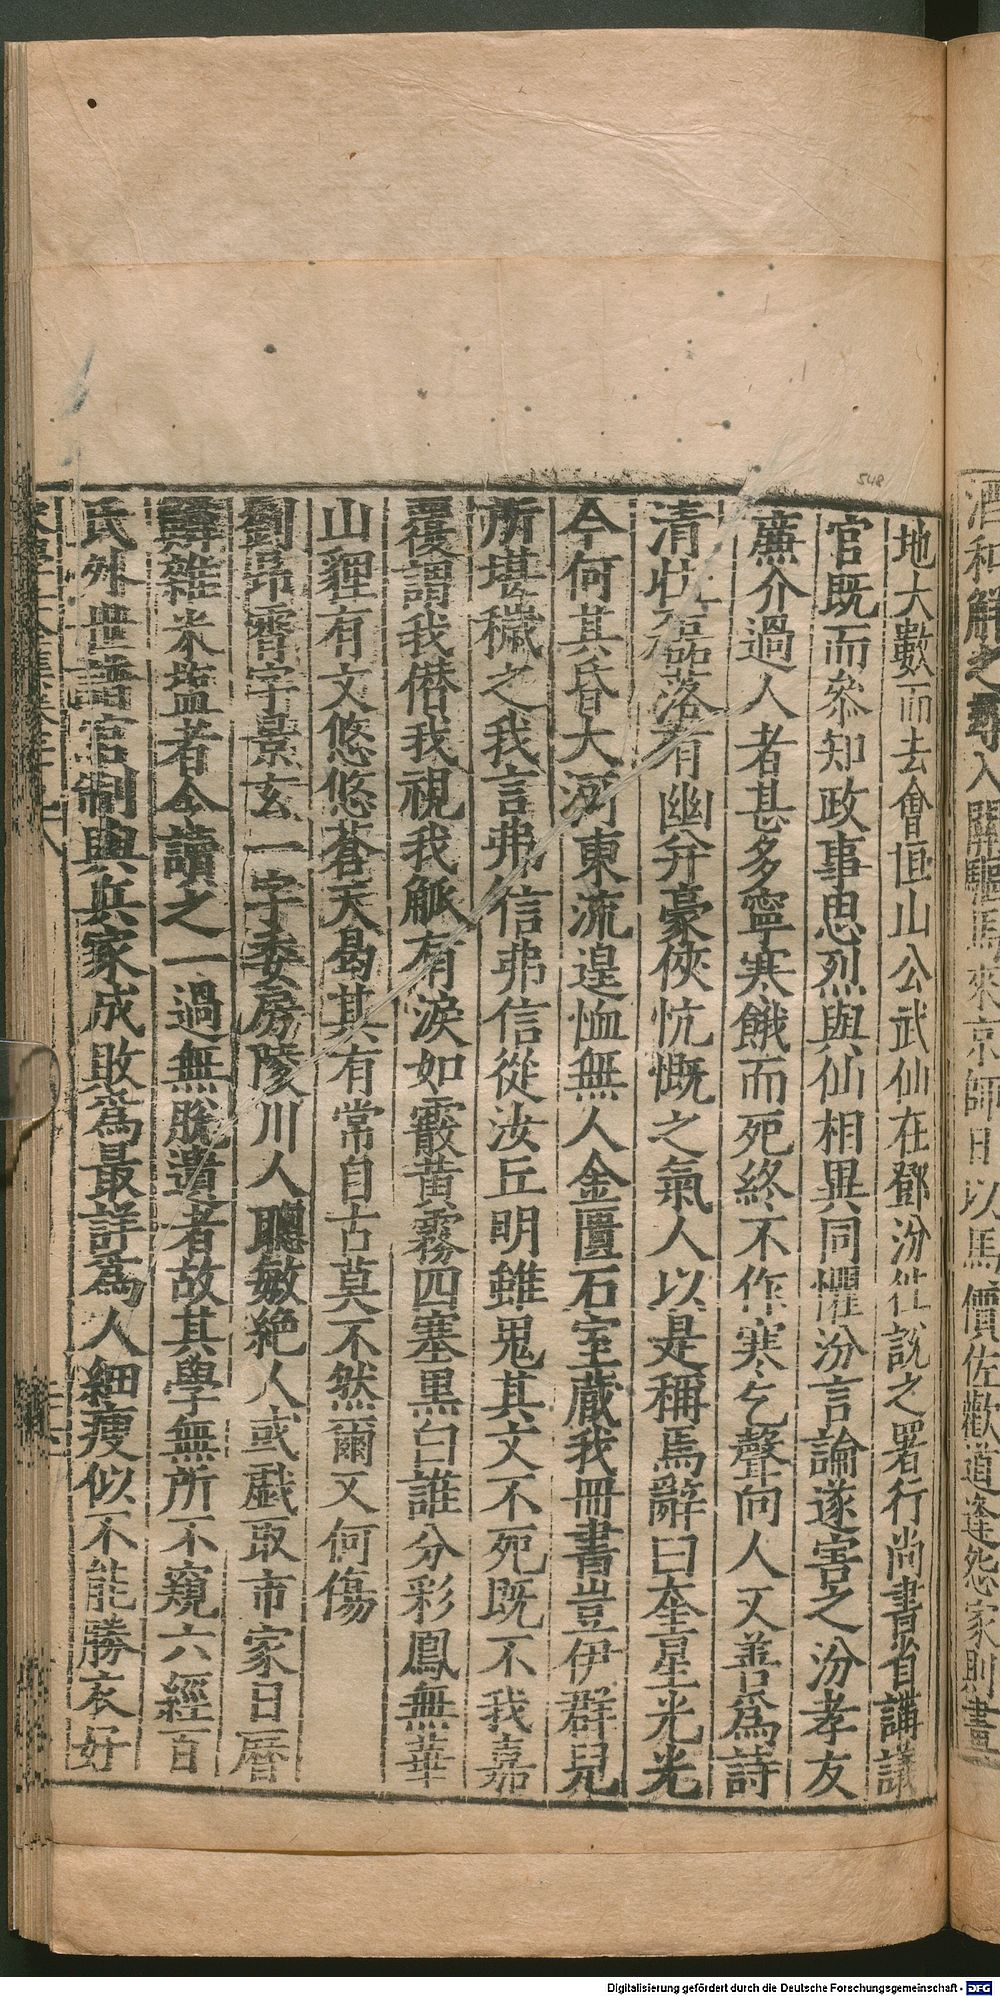 酒和解之尋入關驢馬來京師日以馬價佐歡道逢怨家則畫
地大數而去會恒山公武仙在鄧汾往說之署行尚書省講議
官既而叅知政事思烈與仙相異同懼汾言論遂害之汾孝友
廉介過人者甚多寧寒餓而死終不作寒乞聲向人又善爲詩
清壯磊落有幽并豪俠忼慨之氣人以是稱焉辭曰奎星光光
今何其昏大河東流遑恤無人金匱石室蔵我冊書豈伊群兒
所堪穢之我言弗信弗信從汝丘明雖鬼其文不死既不我嘉
覆謂我僭我視我觚有淚如霰黃霧四塞黒白誰分彩鳳無華
山貍有文悠悠蒼天曷其有常自古莫不然爾又何傷
劉昂霄字景玄一字季房陵川人聰敏絶人或戱取市家日曆
雜米塩者令讀之一過無脫遺者故其學無所不窺六經百
氏外世譜官制與兵家成敗爲最詳爲人細瘦似不能勝衣好
548
Digitalisierung gefördert durch die Deutsche Forschungsgemeinschaft - DFG